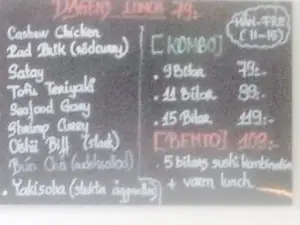 DAGENS LUNCH 79:-
MÅN-FRE
(11-15)
Cashew Chicken
Pad Prik (nötcurry)
Satay
Tofu Teriyaki
Seafood Gang
Shrimp Curry
Oishii Biff (stark)
Bún Chả (nudelsallad)
• Yakisoba (stekta äggnudlar)
[KOMBO]
• 9 Bitar 79:-
• 11 Bitar 99:-
• 15 Bitar 119:-
[BENTO] 109:-
• 5 bitars sushi kombination
+ varm lunch